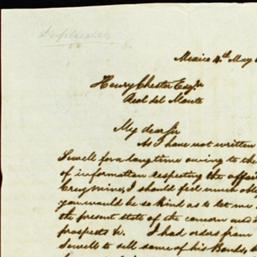 Duplicate
Mexico 4th May
Henry Chester Esqr
Real del Monte
My dear Sir
As I have not written
Sowell for a long time owing to the
of information respecting the affairs
mines, I should feel much obl
you would be so kind as to let me
the present state of the concern and
prospects &c. I had orders from
Sowell to sell some of his Bonds,